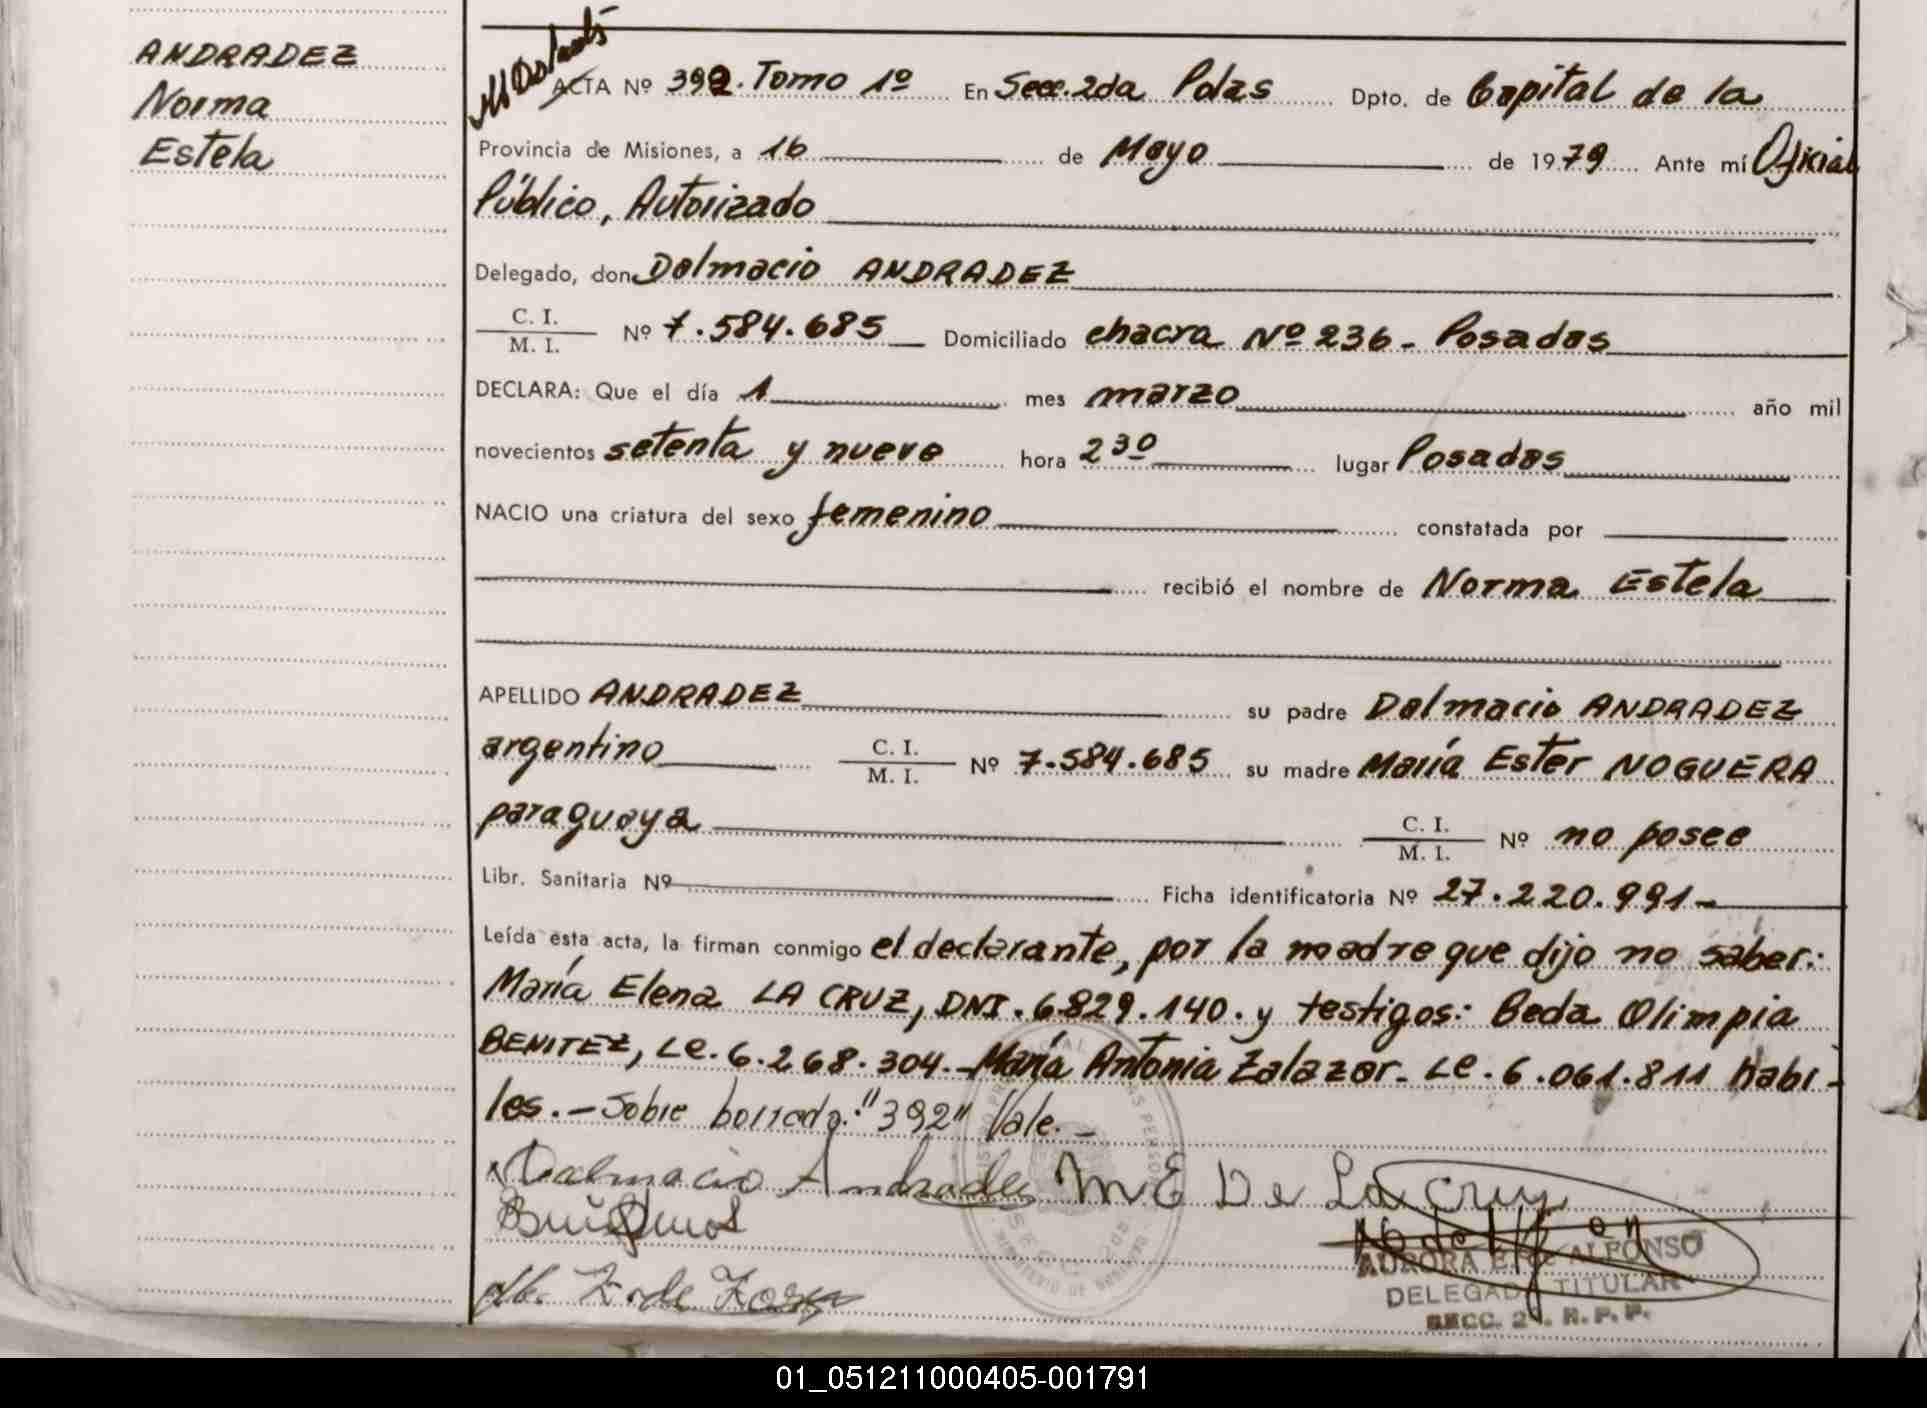 ANDRADEZ
Norma
Estela
ACTA Nº 392. Tomo 1º En Secc. 2da Pdas Dpto. de Capital de la
Provincia de Misiones, a 16 de Mayo de 1979 Ante mí Oficial
Público, Autorizado
Delegado, don Dalmacio ANDRADEZ
C. I.
M. I. Nº 7.584.685 Domiciliado chacra Nº 236 - Posadas
DECLARA: Que el día 1 mes marzo año mil
novecientos setenta y nueve hora 230 lugar Posadas
NACIO una criatura del sexo femenino constatada por
recibió el nombre de Norma Estela
APELLIDO ANDRADEZ su padre Dalmacio ANDRADEZ
argentino C. I.
M. I. Nº 7.584.685 su madre María Ester NOGUERA
paraguaya C. I.
M. I. Nº no posee
Libr. Sanitaria Nº Ficha identificatoria Nº 27.220.991-
Leída esta acta, la firman conmigo el declarante, por la madre que dijo no saber:
María Elena LA CRUZ, DNI. 6829.140. y testigos: Beda Olimpia
BENITEZ, LE. 6.268.304.- María Antonia Zalazar. LE. 6.061.811 habi-
les. - Sobre borrado: "392" Vale. -
Dalmacio Andradez M E De La Cruz
AURORA E. de ALFONSO
DELEGADA TITULAR
SECC. 2a. R. P. P.
01_051211000405-001791